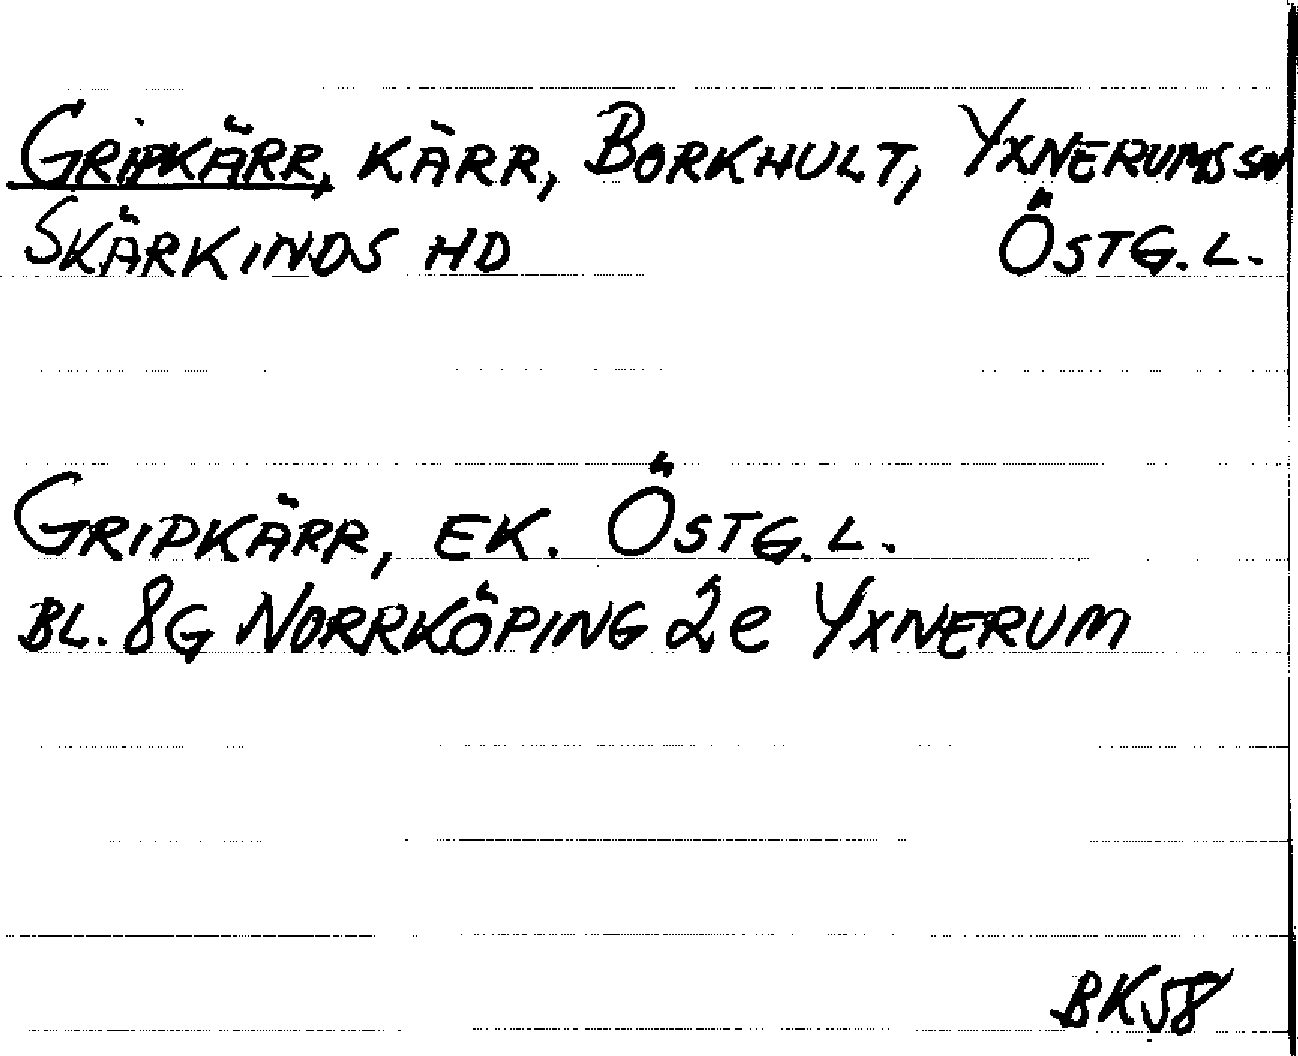 GRIPKÄRR, KÄRR, BORKHULT, YXNERUMS SN
SKÄRKINDS HD ÖSTG. L.
GRIPKÄRR, EK. ÖSTG. L.
BL. 8G NORRKÖPING 2e YXNERUM
BK58